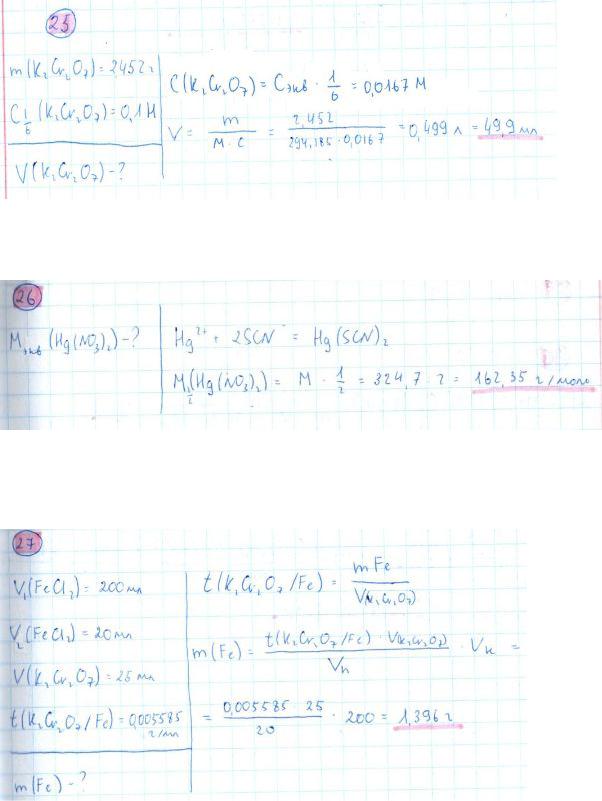 25
m(K₂Cr₂O₇) = 2,452 г
C 1/6 (K₂Cr₂O₇) = 0,1 Н
V(K₂Cr₂O₇) - ?
C(K₂Cr₂O₇) = Cэкв · 1/6 = 0,0167 М
V = m / M · C = 2,452 / 294,185 · 0,0167 = 0,499 л = 49,9 мл
26
Mэкв (Hg(NO₃)₂) - ?
Hg²⁺ + 2SCN⁻ = Hg(SCN)₂
M 1/2 (Hg(NO₃)₂) = M · 1/2 = 324,7 : 2 = 162,35 г/моль
27
V₁(FeCl₂) = 200 мл
V₂(FeCl₂) = 20 мл
V(K₂Cr₂O₇) = 25 мл
t(K₂Cr₂O₇/Fe) = 0,005585 г/мл
m(Fe) - ?
t(K₂Cr₂O₇/Fe) = mFe / V(K₂Cr₂O₇)
m(Fe) = t(K₂Cr₂O₇/Fe) · V(K₂Cr₂O₇) / Vп · Vк =
= 0,005585 · 25 / 20 · 200 = 1,396 г